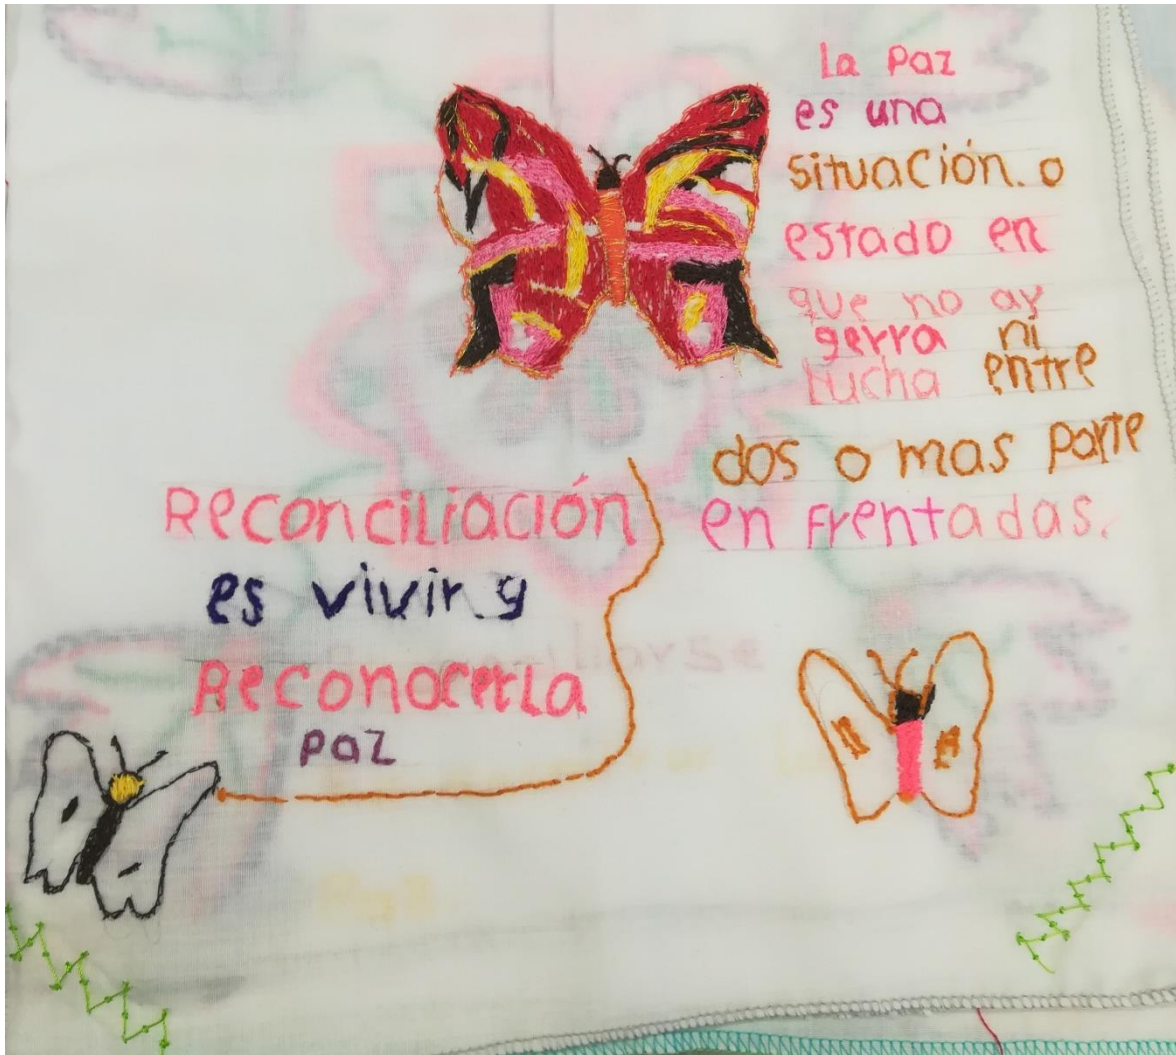 La Paz
es una
situación. o
estado en
que no ay
gerra ni
lucha entre
dos o mas parte
en frentadas.
Reconciliación
es vivir y
Reconocerla
paz